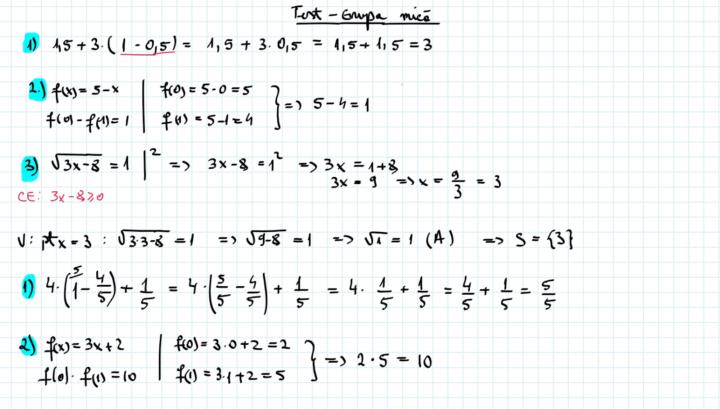 Test - Grupa mică
1) 1,5 + 3·(1 - 0,5) = 1,5 + 3·0,5 = 1,5 + 1,5 = 3
2.) f(x) = 5 - x | f(0) = 5 - 0 = 5 } => 5 - 4 = 1
f(0) - f(1) = 1 | f(1) = 5 - 1 = 4
3) √(3x-8) = 1 |² => 3x - 8 = 1² => 3x = 1 + 8
3x = 9 => x = 9/3 = 3
CE: 3x - 8 ≥ 0
V: pt x = 3 : √(3·3-8) = 1 => √(9-8) = 1 => √1 = 1 (A) => S = {3}
1) 4·(⁵⁾1 - 4/5) + 1/5 = 4·(5/5 - 4/5) + 1/5 = 4·1/5 + 1/5 = 4/5 + 1/5 = 5/5
2) f(x) = 3x + 2 | f(0) = 3·0 + 2 = 2 } => 2·5 = 10
f(0)·f(1) = 10 | f(1) = 3·1 + 2 = 5